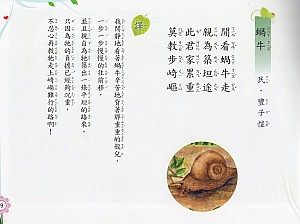 蝸牛
民．豐子愷
閒看蝸牛走
親為築坦途
此君家累重
莫教步崎嶇
譯
我閒靜地看著蝸牛辛苦地背著厚重的殼兒，
一步一步慢慢的往前移，
並且親自為牠築出一條平坦的路來。
只因為牠的負擔已經夠沉重，
不忍心再教牠走上崎嶇難行的路啊！
9